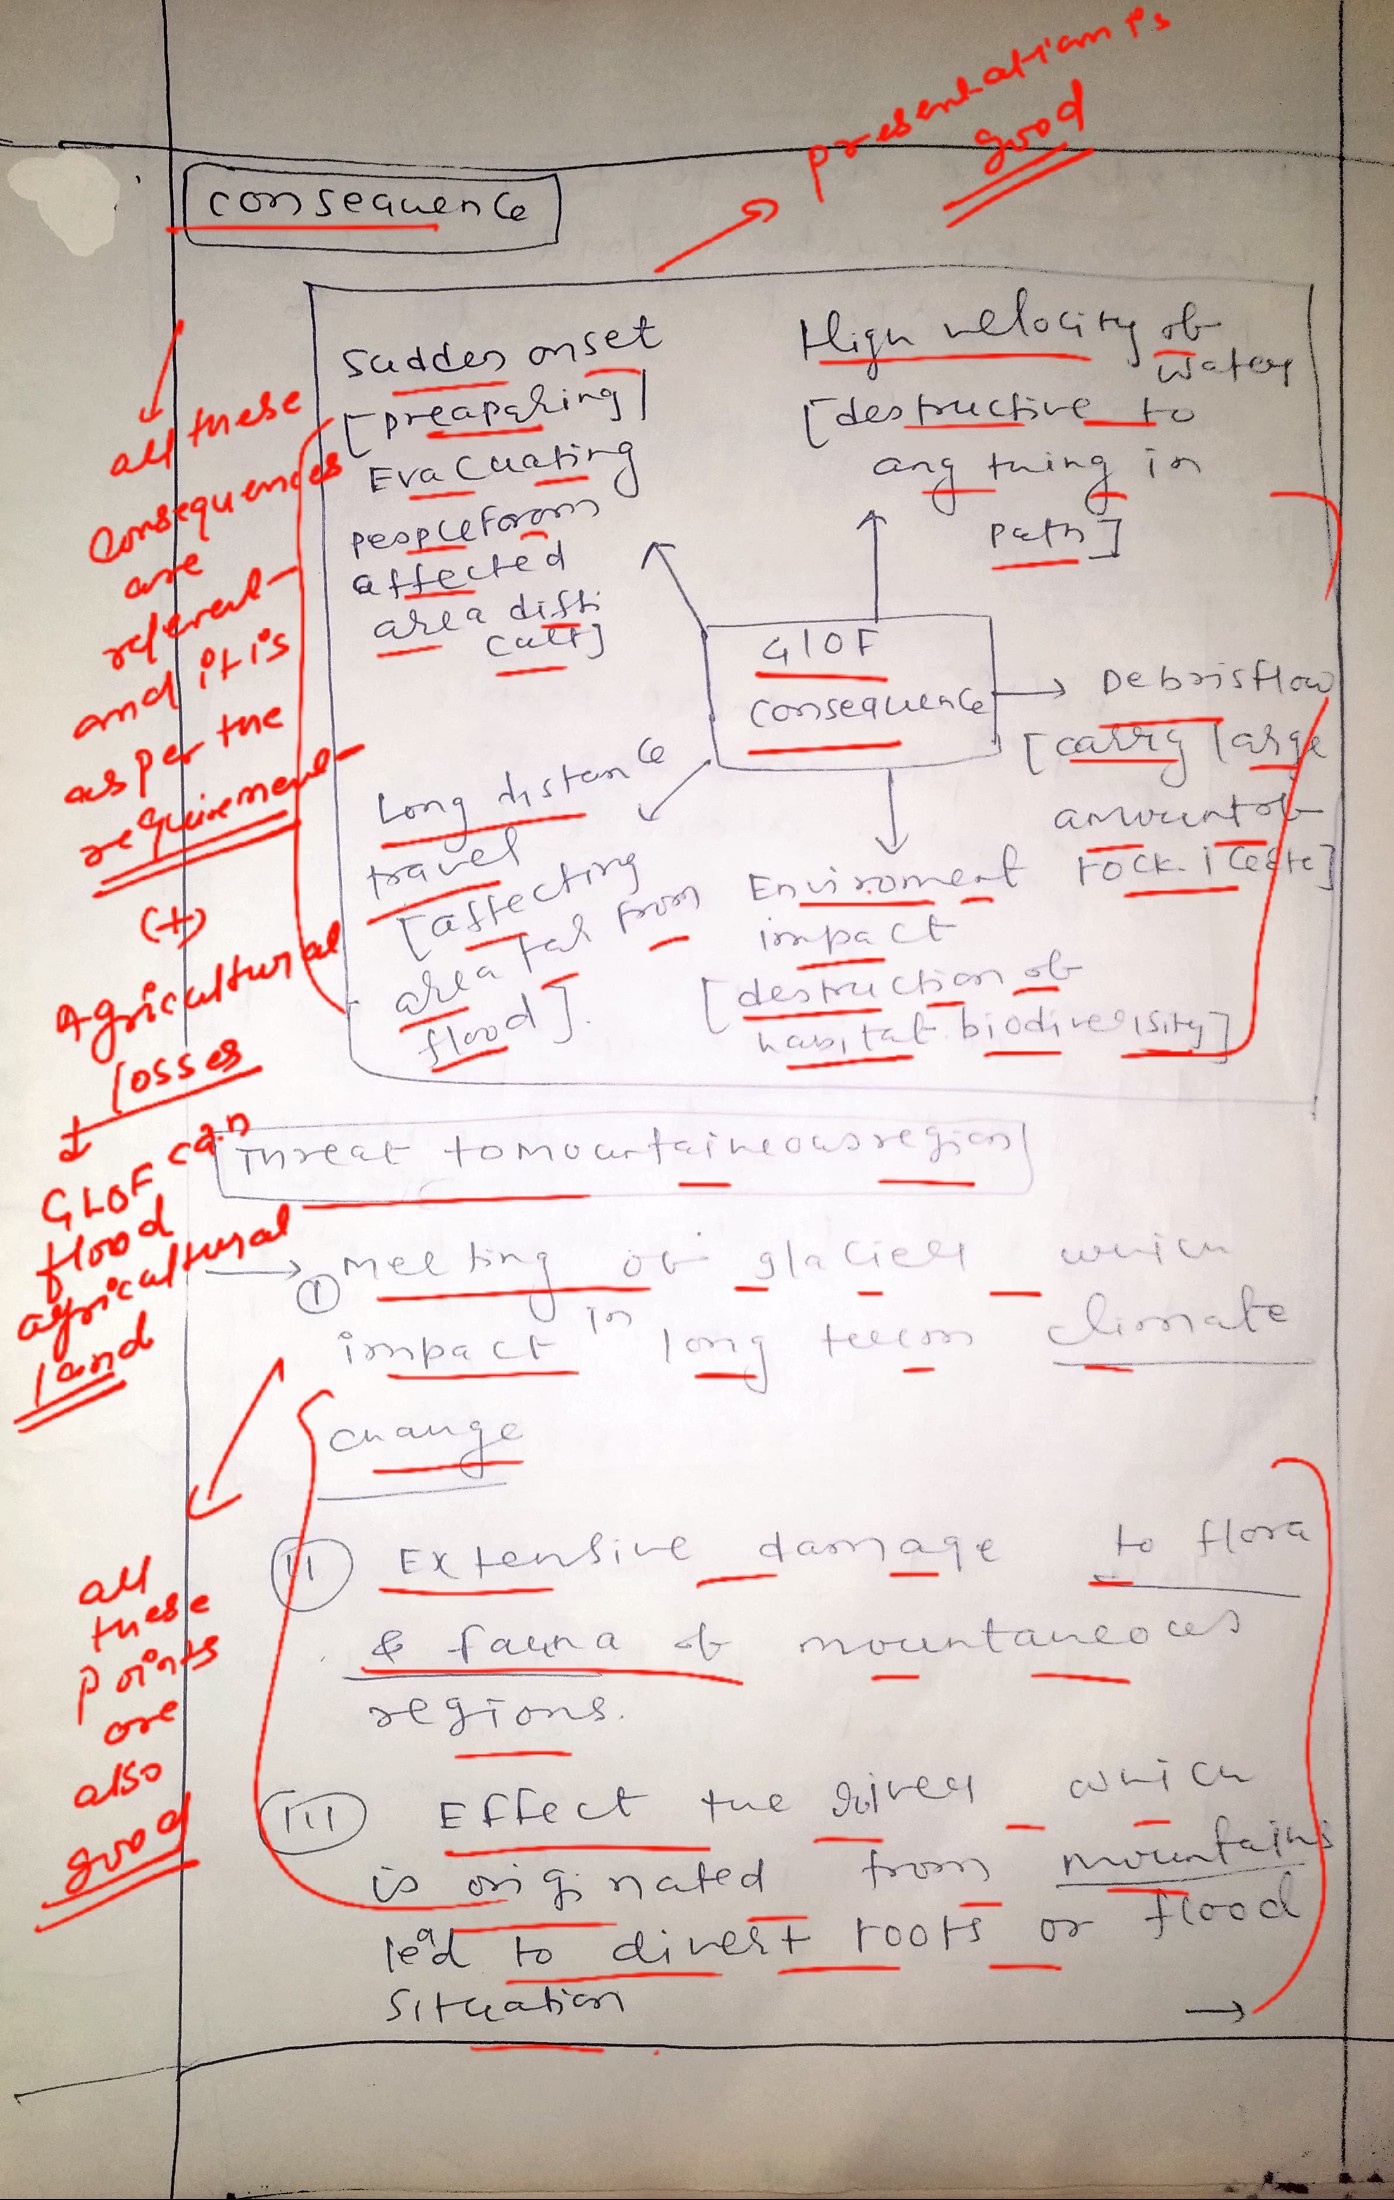 presentation is
good
consequence
Sudden onset
[preaparing]
Evacuating
people from
affected
area diffi
cult]
High velocity of
water
[destructive to
any thing in
path]
GLOF
consequence
Debris flow
[carry large
amount of
rock. ice etc]
Long distance
travel
[affecting
area far from
flood].
Enviroment
impact
[destruction of
habitat biodiversity]
Threat to mountaineous region
→ ① Melting of glacier which
impact in long term climate
change
(II) Extensive damage to flora
& fauna of mountaneous
regions.
(III) Effect the river which
is originated from mountains
lead to divert roots or flood
situation
all these
consequences
are
referent
and it is
as per the
requirement
(+)
Agricultural
losses
GLOF can
flood
agricultural
land
all
these
points
are
also
good